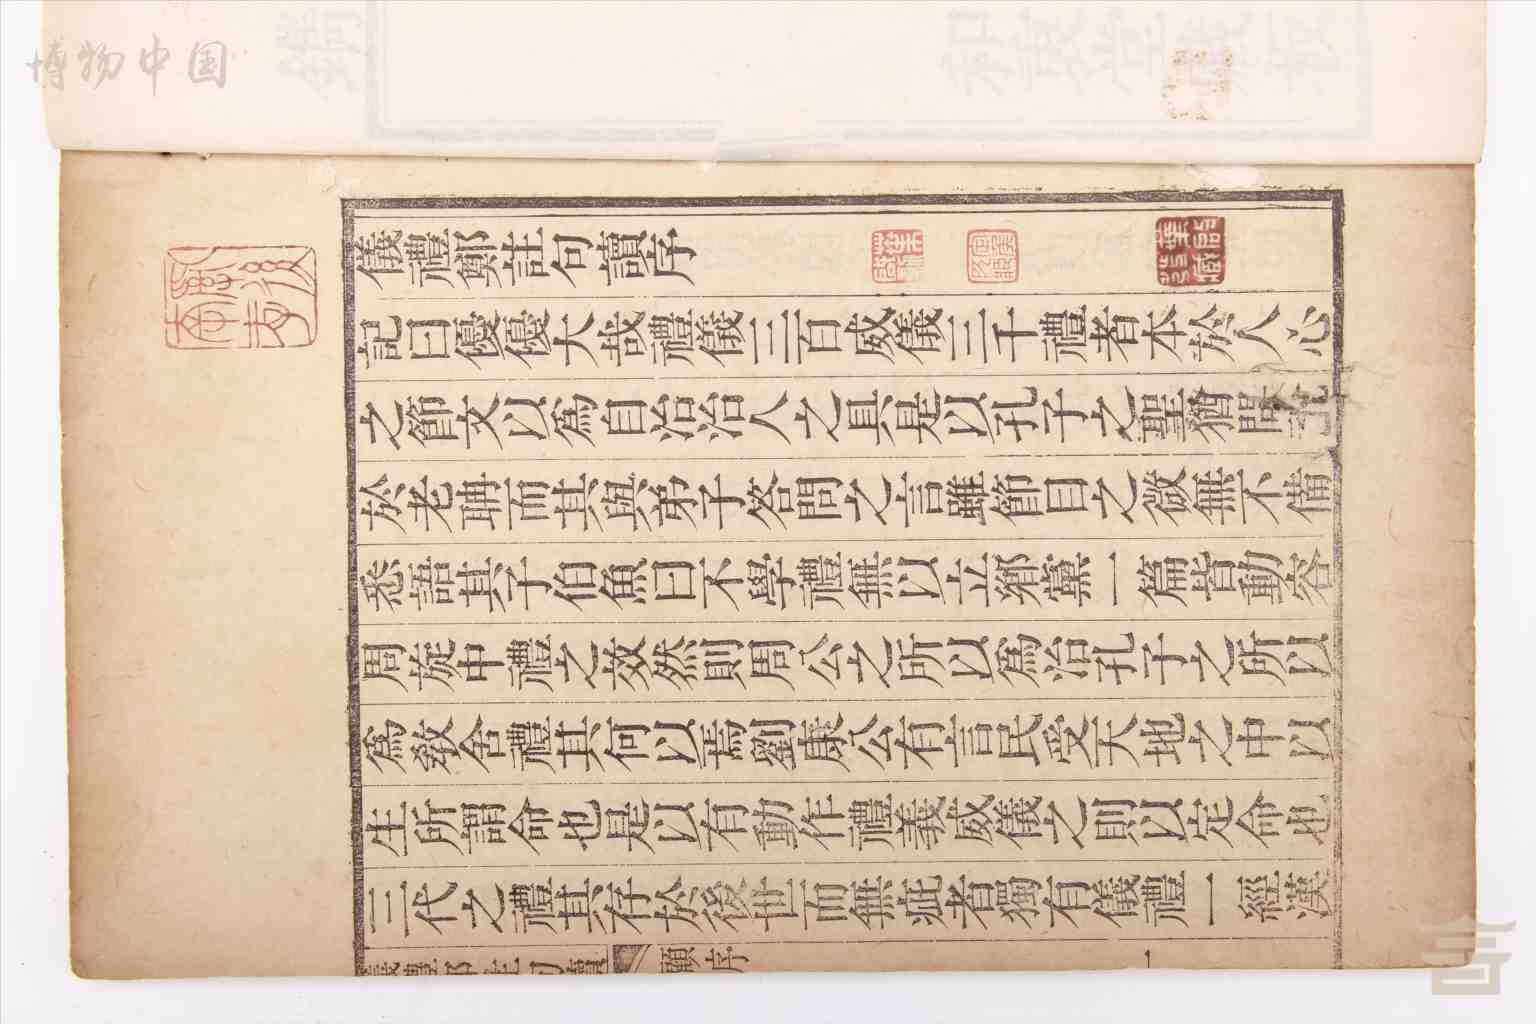 博物中国
儀禮鄭註句讀序
記曰優優大哉禮儀三百威儀三千禮者本於人心
之節文以爲自治治人之具是以孔子之聖猶問禮
於老聃而其與弟子答問之言雖節目之微無不備
悉語其子伯魚曰不學禮無以立鄉黨一篇皆動容
周旋中禮之效然則周公之所以爲治孔子之所以
爲教舍禮其何以焉劉康公有言民受天地之中以
生所謂命也是以有動作禮義威儀之則以定命也
三代之禮其存於後世而無疵者獨有儀禮一經漢
儀禮鄭註句讀 顧序 一